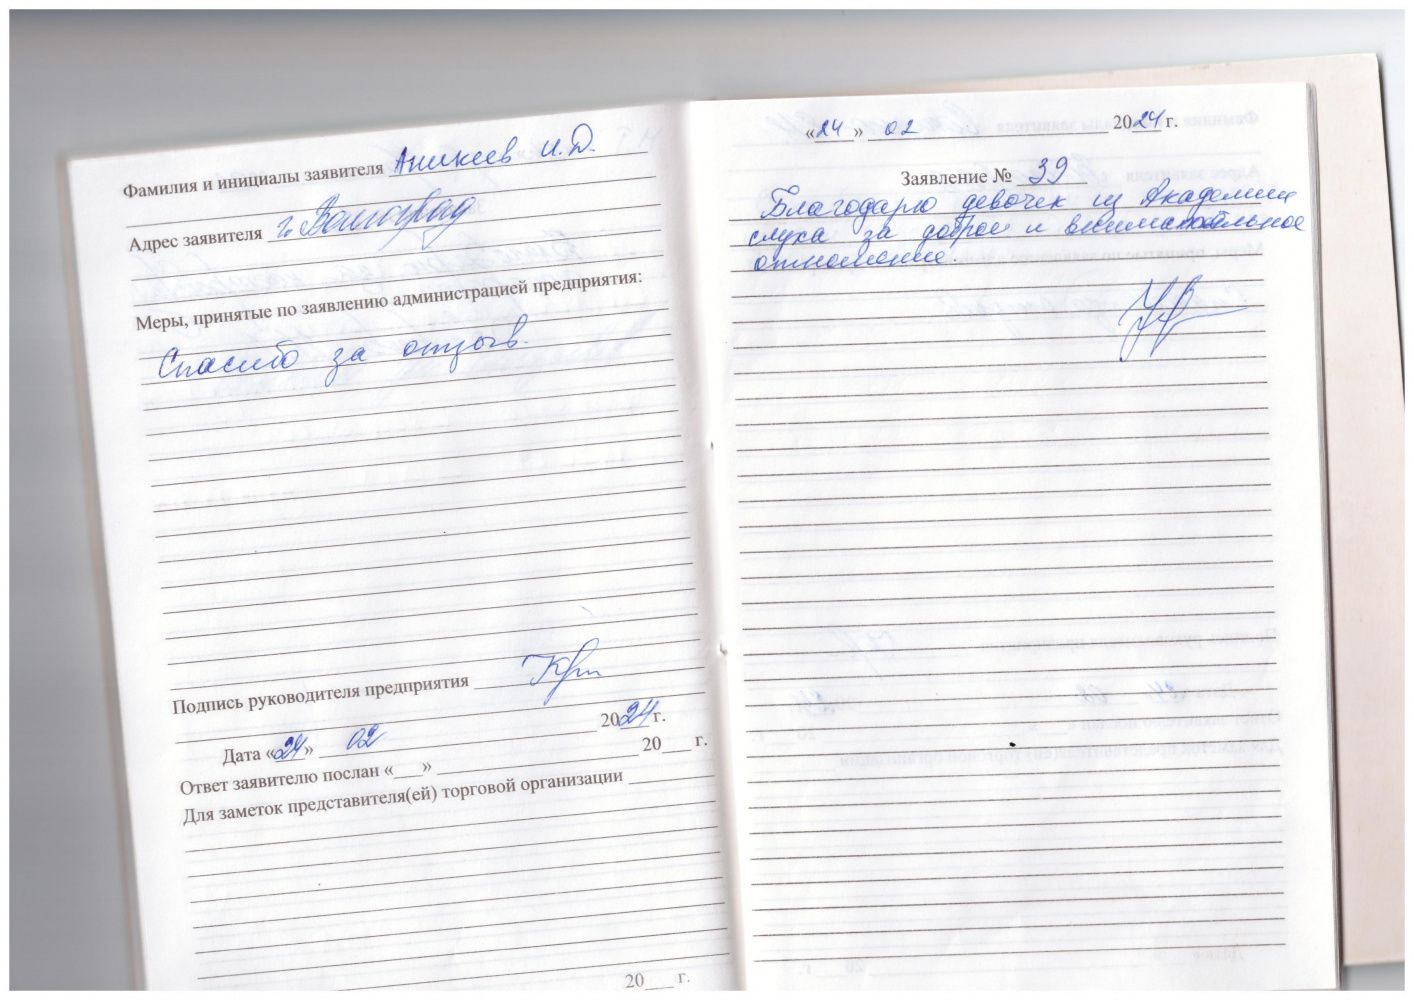 Фамилия и инициалы заявителя Аникеев И.Д.
Адрес заявителя г. Волгоград
Меры, принятые по заявлению администрацией предприятия:
Спасибо за отзыв.
Подпись руководителя предприятия
Дата «24» 02 2024 г.
Ответ заявителю послан «___» 20___ г.
Для заметок представителя(ей) торговой организации
20___ г.
«24» 02 2024 г.
Заявление № 39
Благодарю девочек из Академии
слуха за доброе и внимательное
отношение.